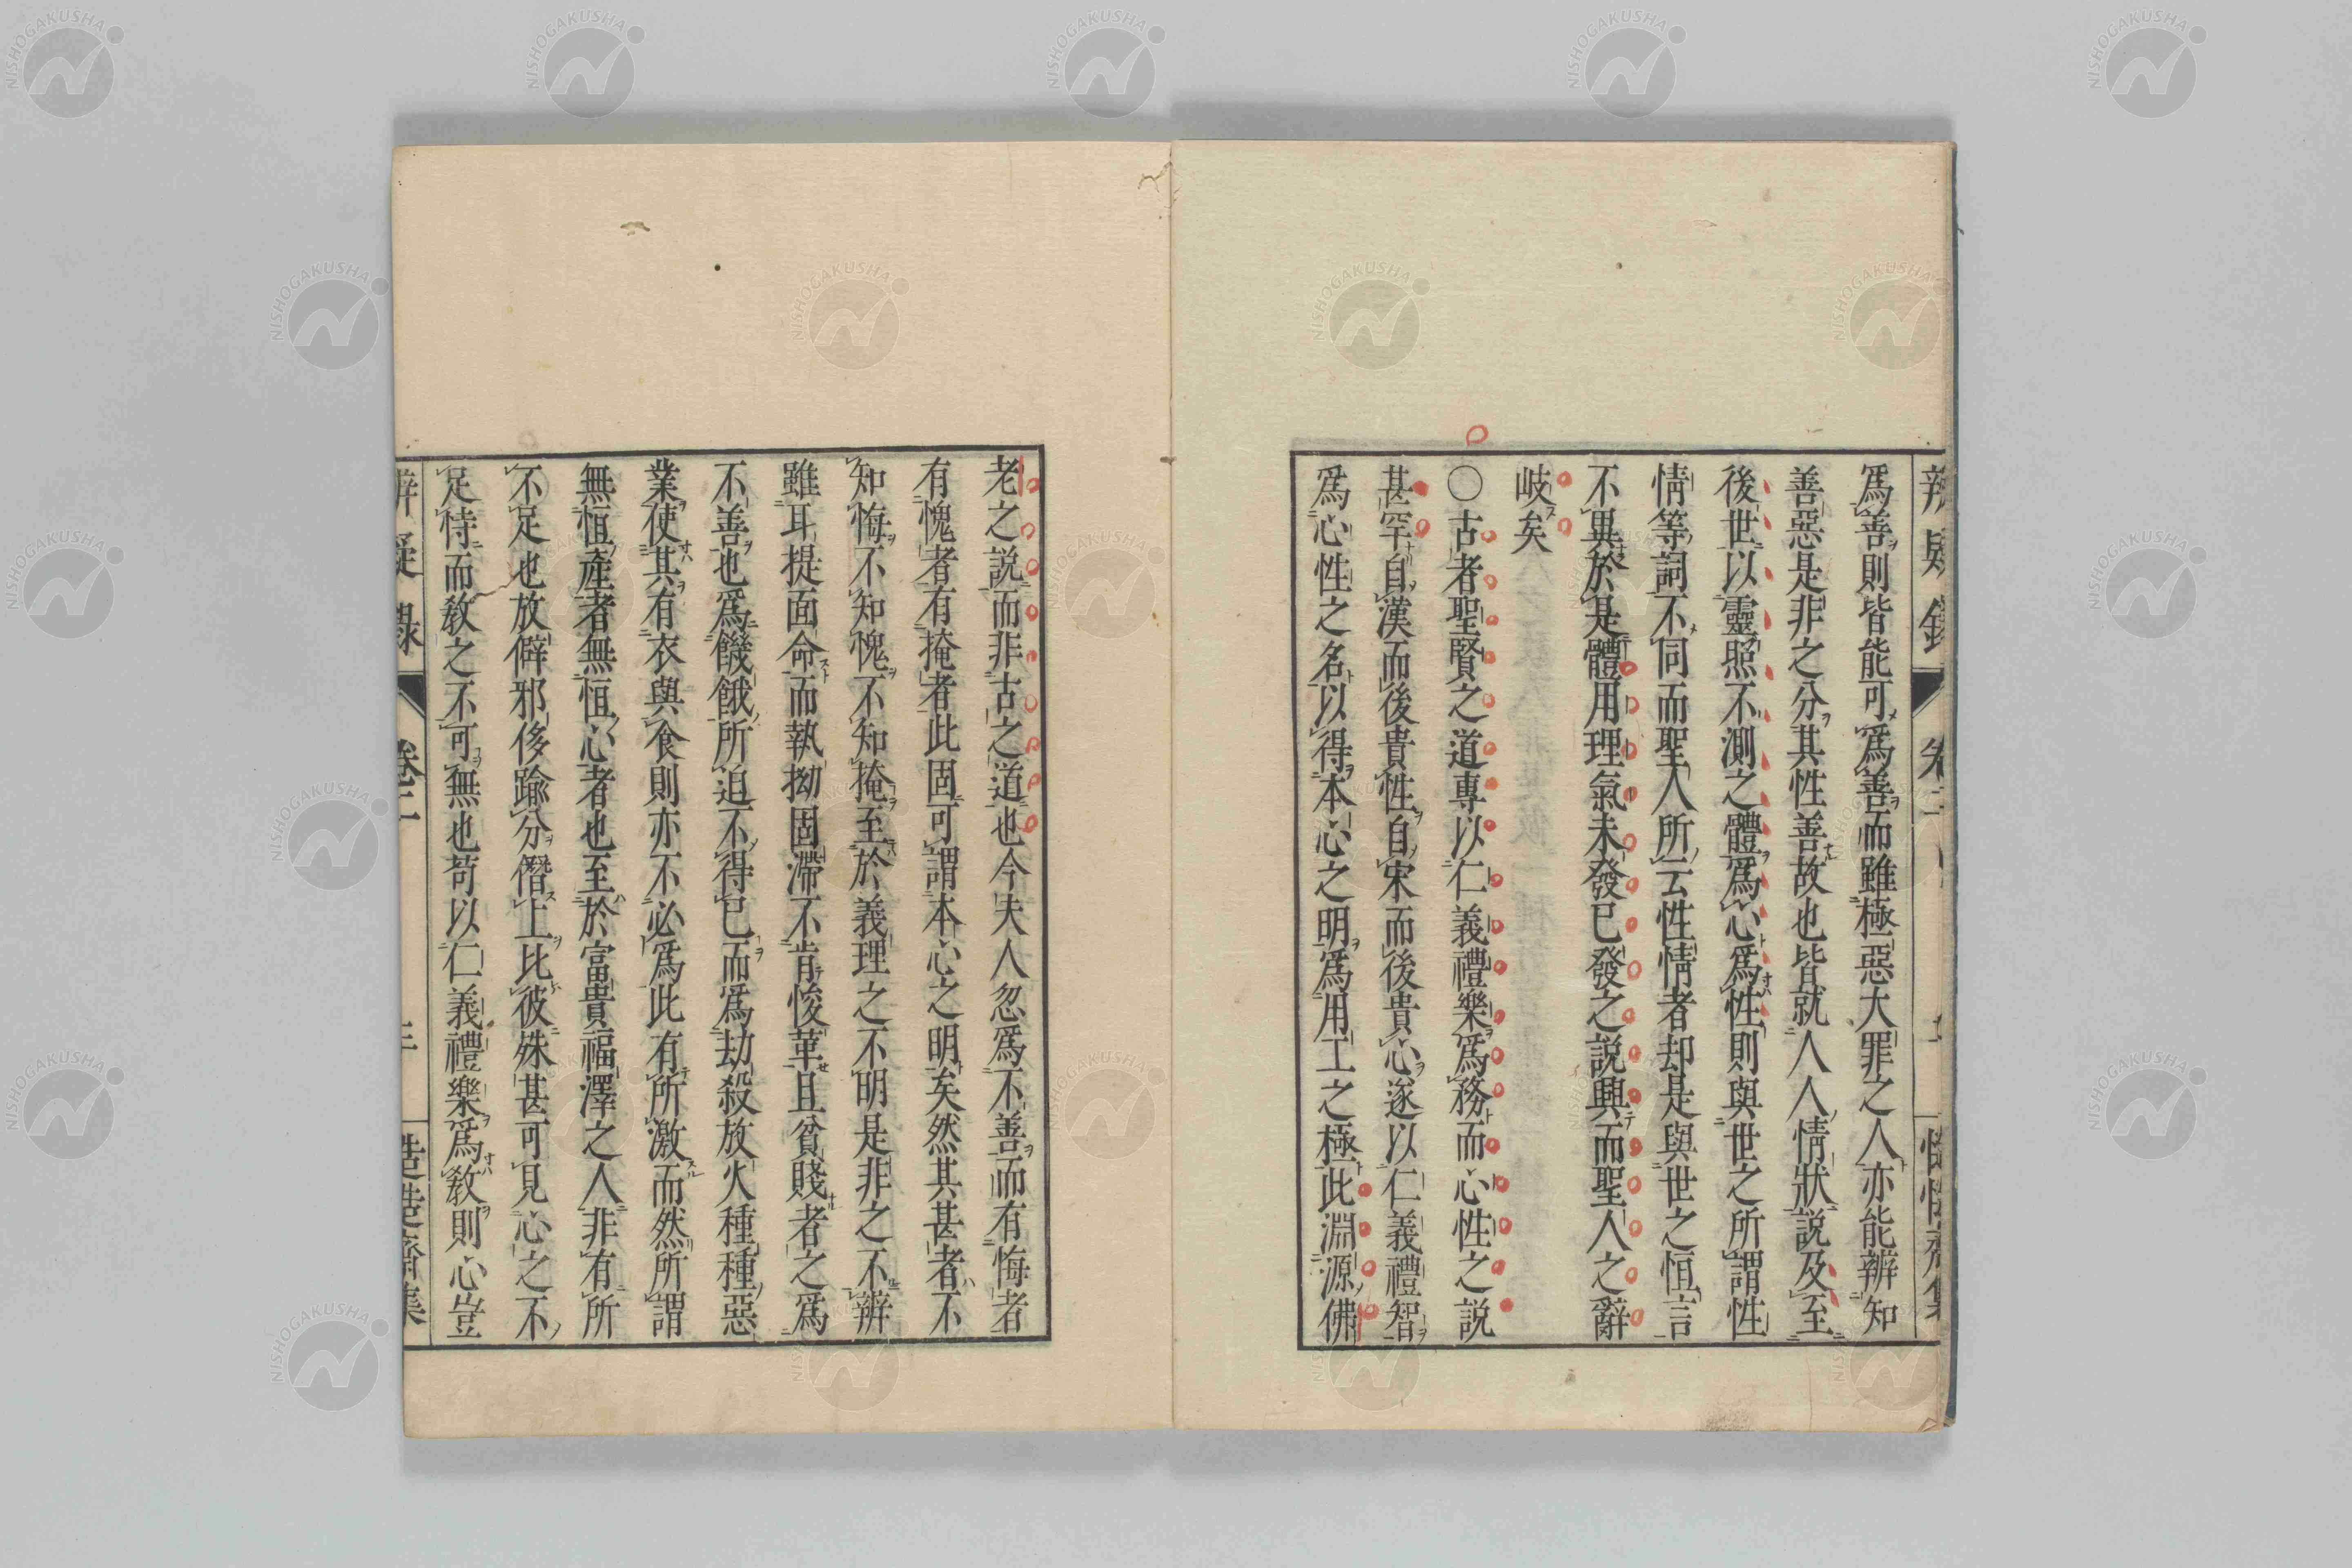 爲善則皆能可爲善而雖極惡大罪之人亦能辨知
善惡是非之分其性善故也皆就人人情狀說及至
後世以靈照不測之體爲心爲性則與世之所謂性
情等詞不同而聖人所云性情者却是與世之恒言
不異於是體用理氣未發已發之說興而聖人之辭
岐矣
〇古者聖賢之道專以仁義禮樂爲務而心性之說
甚罕自漢而後貴性自宋而後貴心遂以仁義禮智
爲心性之名以得本心之明爲用工之極此淵源佛
老之說而非古之道也今夫人忽爲不善而有悔者
有愧者有掩者此固可謂本心之明矣然其甚者不
知悔不知愧不知掩至於義理之不明是非之不辨
雖耳提面命而執拗固滯不肯悛革且貧賤者之爲
不善也爲饑餓所迫不得已而爲劫殺放火種種惡
業使其有衣與食則亦不必爲此有所激而然所謂
無恒產者無恒心者也至於富貴福澤之人非有所
不足也放僻邪侈踰分僭上比彼殊甚可見心之不
足恃而敎之不可無也苟以仁義禮樂爲敎則心豈
辨疑錄 卷二